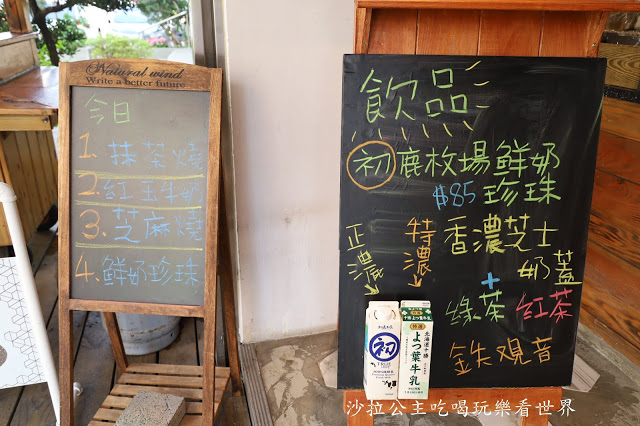 Natural wind
Write a better future
今日
1. 抹茶燒
2. 紅玉牛奶
3. 芝麻燒
4. 鮮奶珍珠
飲品
初鹿牧場鮮奶
$85 珍珠
正濃
特濃
香濃芝士
奶蓋
+
綠茶 紅茶
鉄観音
初
特選
よつ葉牛乳
沙拉公主吃喝玩樂看世界